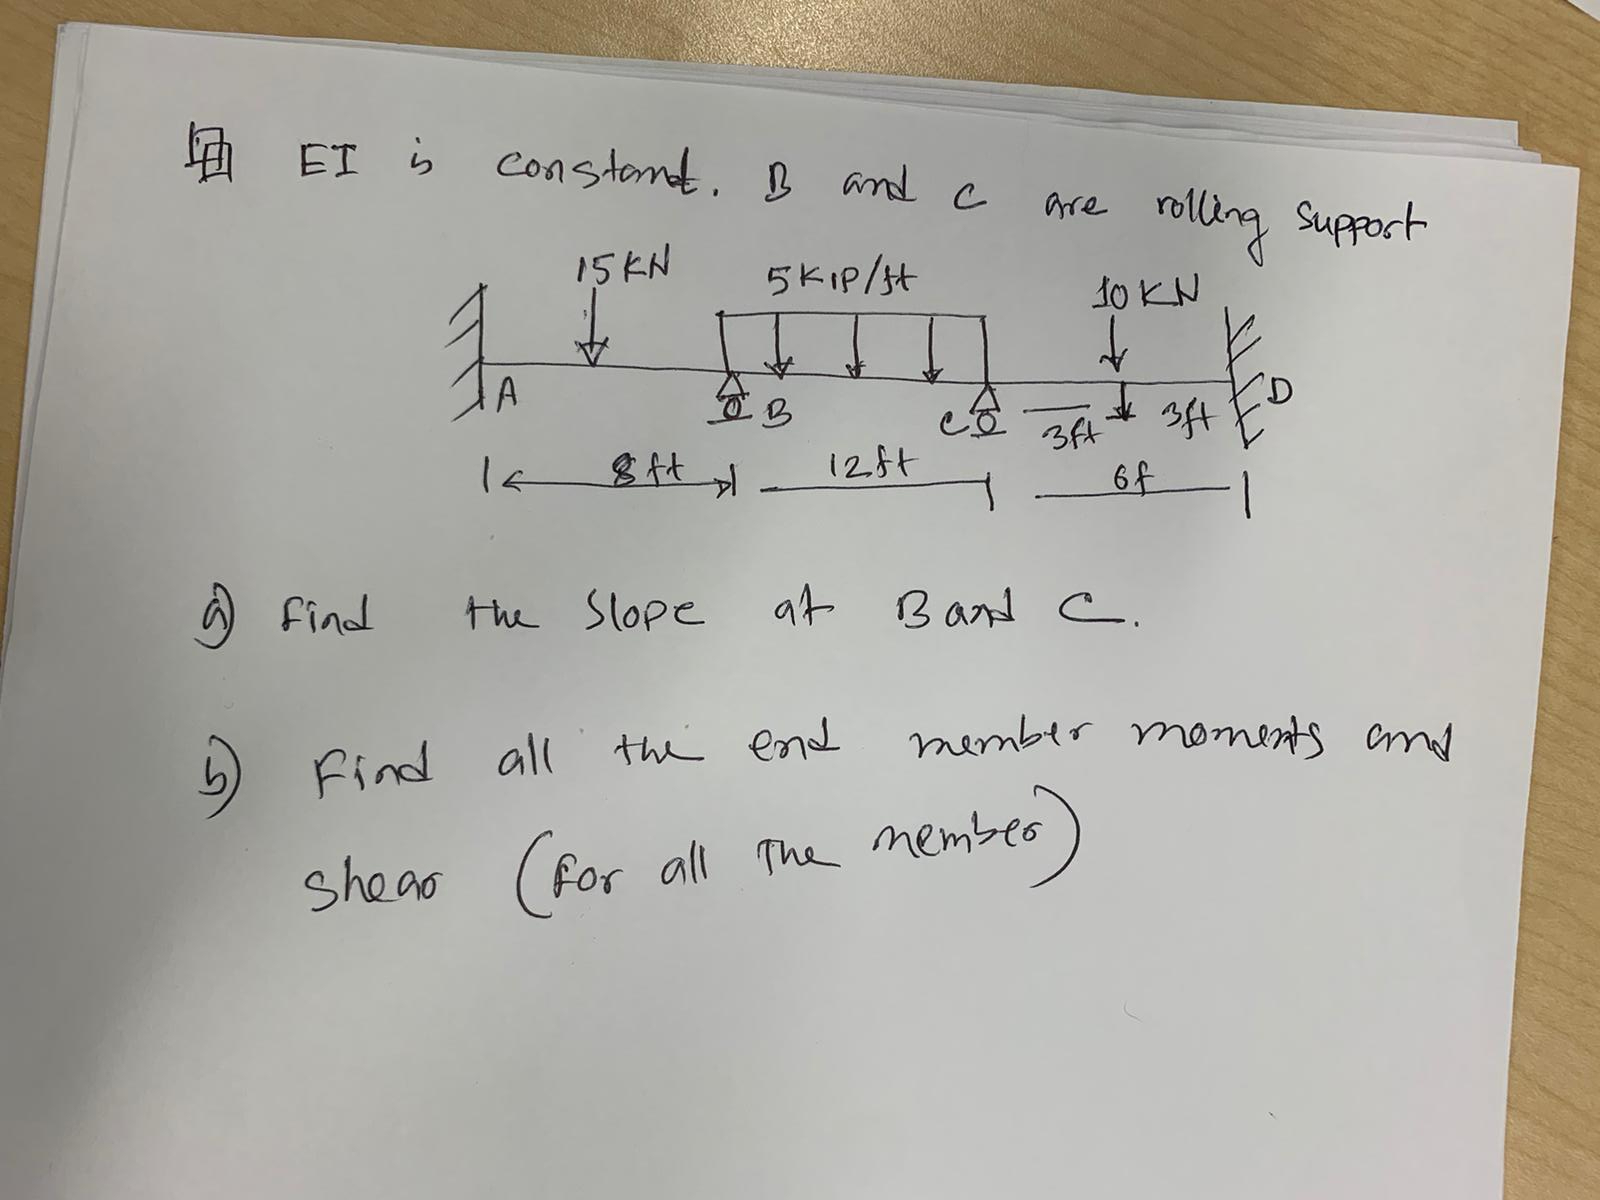 EI is constant. B and C are rolling support
15KN 5KIP/ft 10KN
A B C D
3ft 3ft
8ft 12ft 6f
a) Find the Slope at B and C.
b) Find all the end member moments and
shear (For all The member)